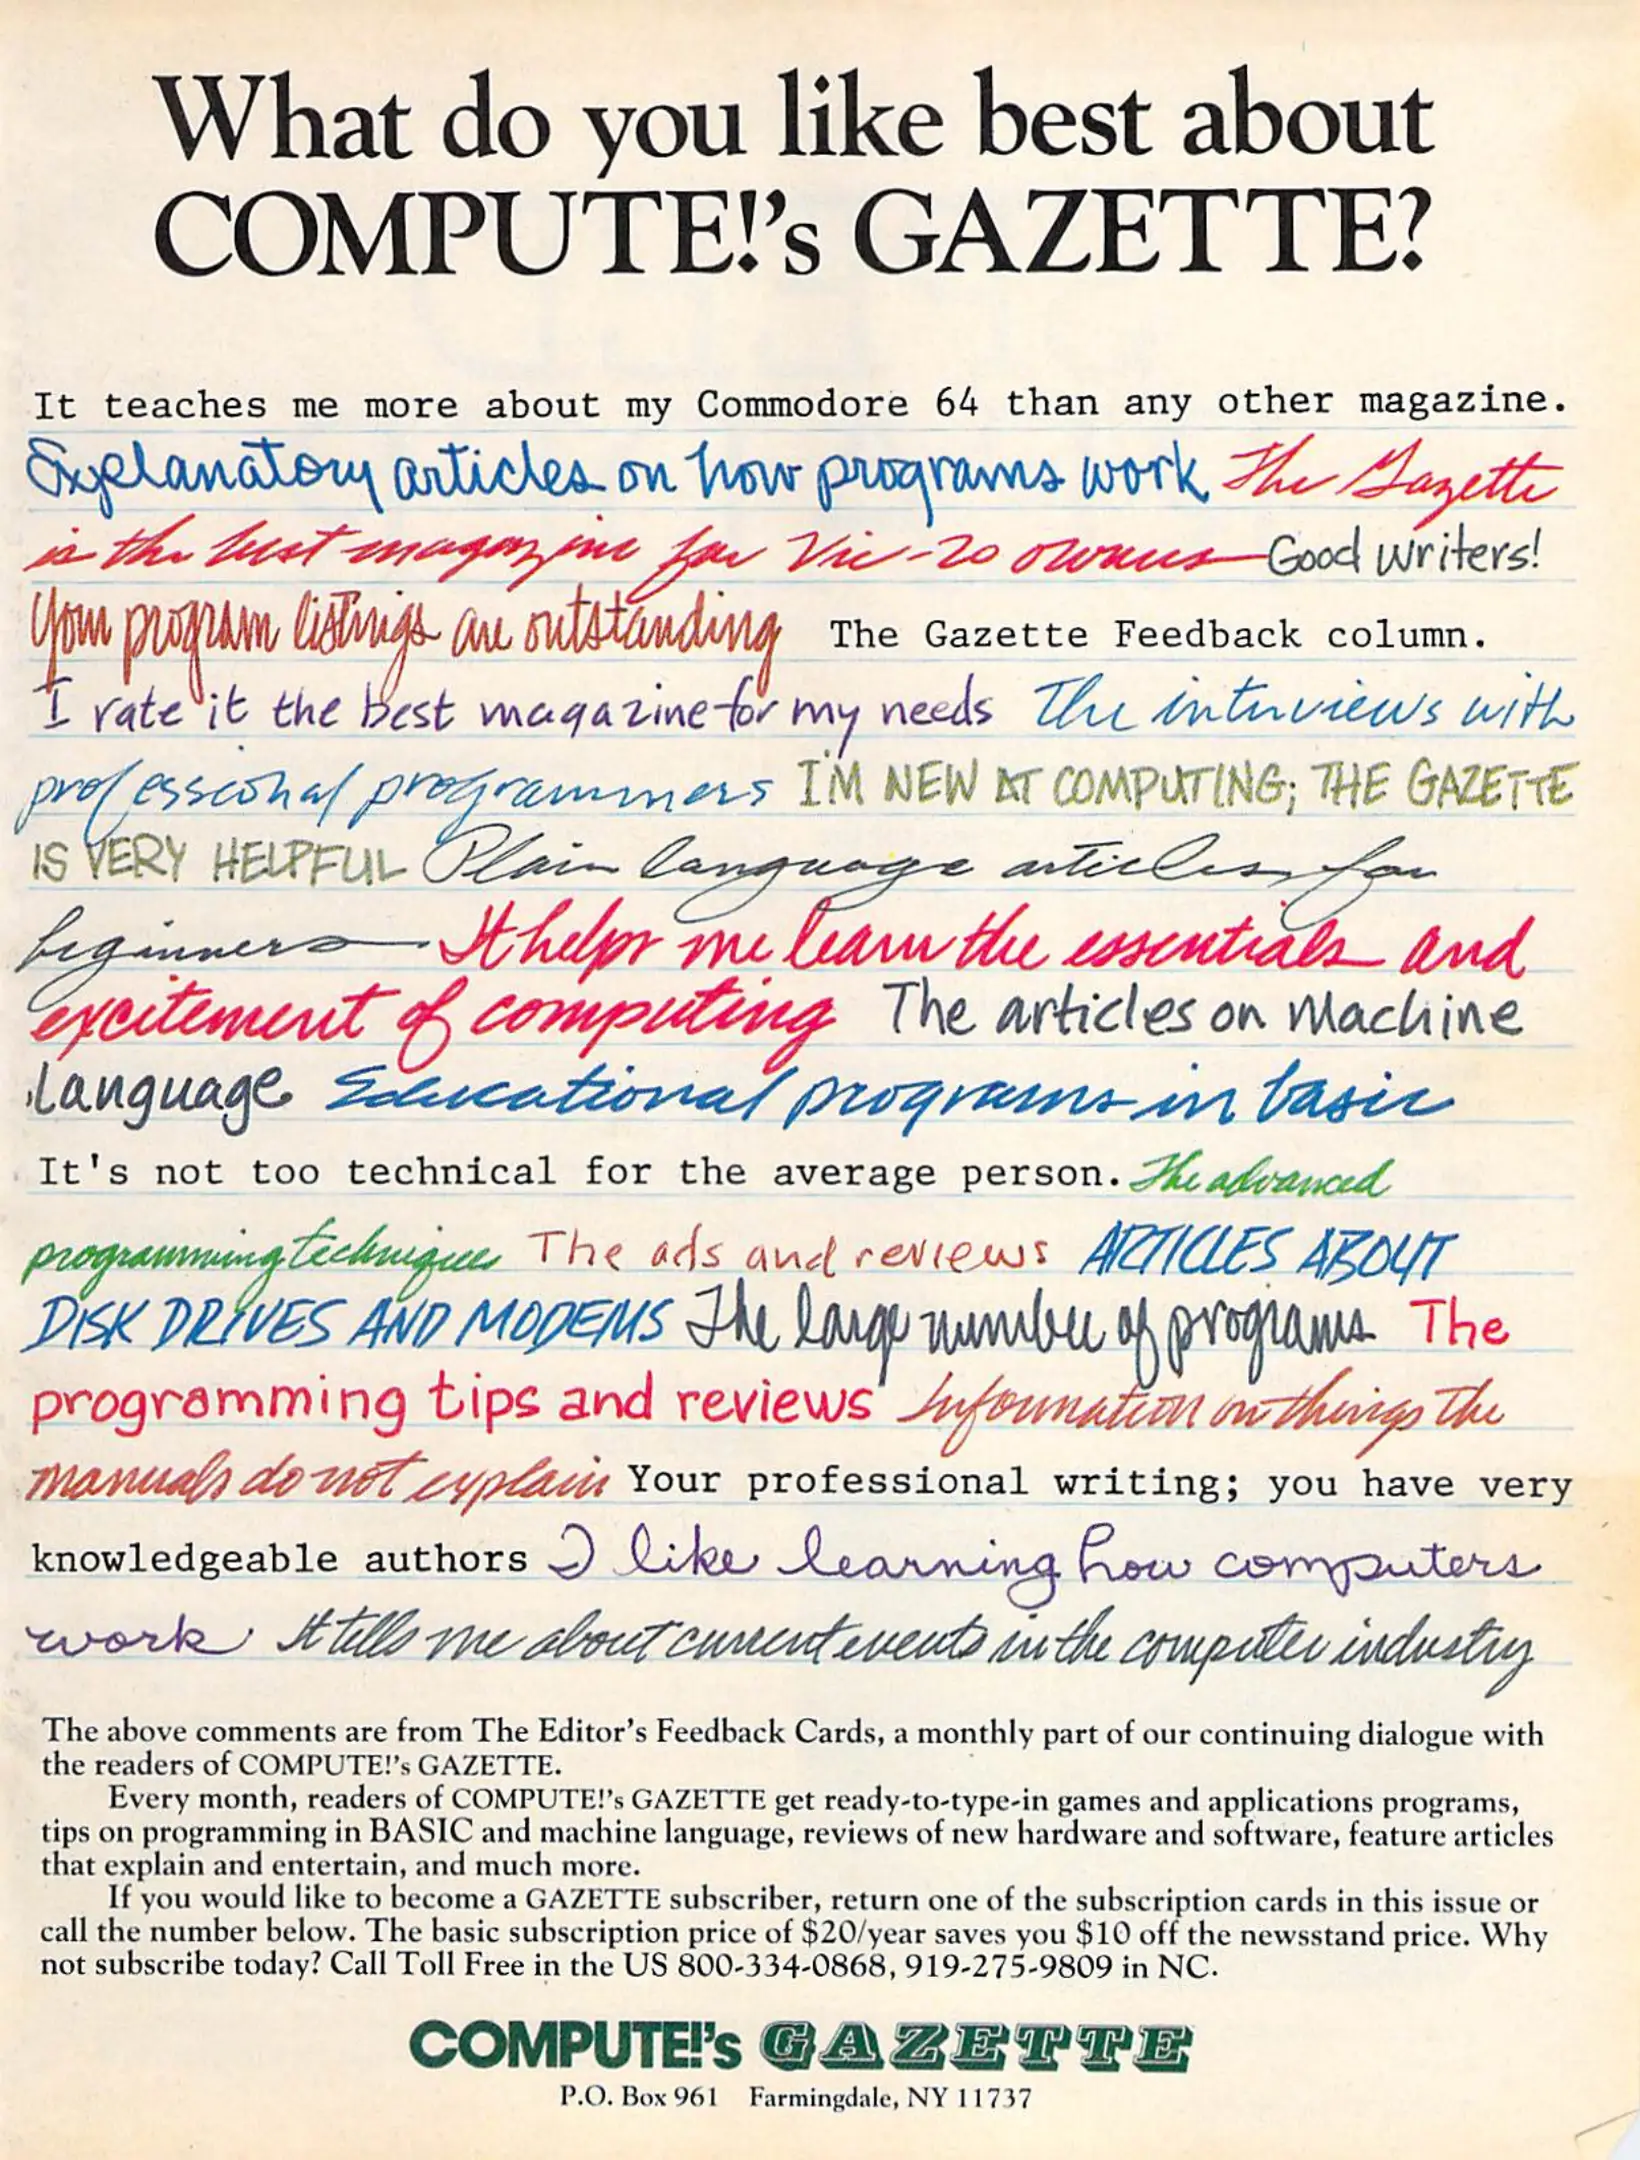 What do you like best about
COMPUTE!'s GAZETTE?
It teaches me more about my Commodore 64 than any other magazine.
Explanatory articles on how programs work The Gazette
is the best magazine for Vic-20 owners Good writers!
Your program listings are outstanding The Gazette Feedback column.
I rate it the best magazine for my needs The interviews with
professional programmers I'M NEW AT COMPUTING; THE GAZETTE
IS VERY HELPFUL Plain language articles for
beginners It helps me learn the essentials and
excitement of computing The articles on Machine
Language Educational programs in basic
It's not too technical for the average person. The advanced
programming techniques The ads and reviews ARTICLES ABOUT
DISK DRIVES AND MODEMS The large number of programs The
programming tips and reviews Information on things the
manuals do not explain Your professional writing; you have very
knowledgeable authors I like learning how computers
work It tells me about current events in the computer industry
The above comments are from The Editor's Feedback Cards, a monthly part of our continuing dialogue with
the readers of COMPUTE!'s GAZETTE.
Every month, readers of COMPUTE!'s GAZETTE get ready-to-type-in games and applications programs,
tips on programming in BASIC and machine language, reviews of new hardware and software, feature articles
that explain and entertain, and much more.
If you would like to become a GAZETTE subscriber, return one of the subscription cards in this issue or
call the number below. The basic subscription price of $20/year saves you $10 off the newsstand price. Why
not subscribe today? Call Toll Free in the US 800-334-0868, 919-275-9809 in NC.
COMPUTE!'s GAZETTE
P.O. Box 961 Farmingdale, NY 11737